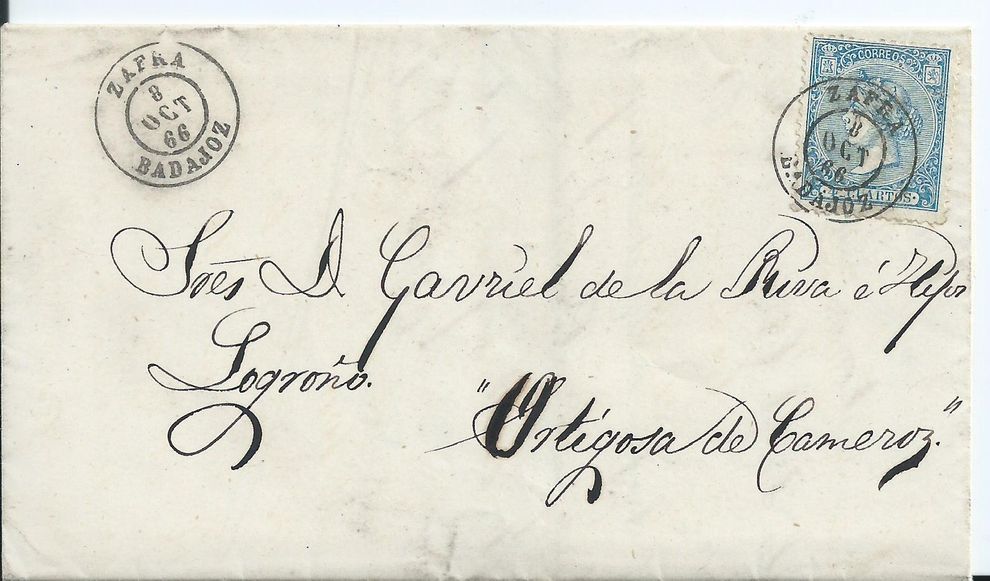 ZAFRA
8
OCT
66
BADAJOZ
CORREOS
ZAFRA
8
OCT
66
BADAJOZ
CUARTOS
Srès D. Gavriel de la Riva é Hijos
Logroño.
"Ortigosa de Cameroz."